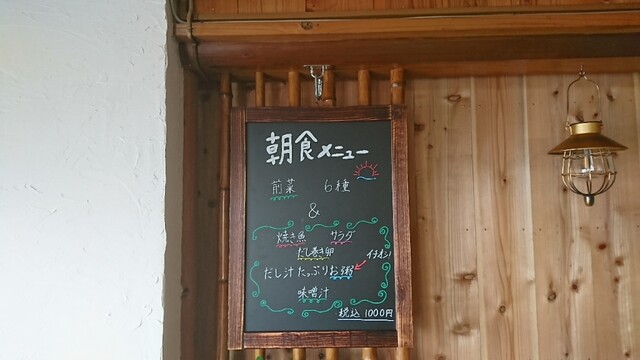 朝食メニュー
前菜 6種
&
焼き魚 サラダ
だし巻き卵
イチオシ!
だし汁たっぷりお粥
味噌汁
税込 1000円